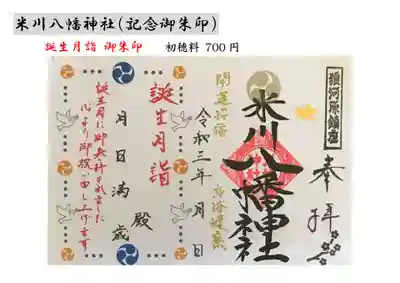 米川八幡神社(記念御朱印)
誕生月詣 御朱印 初穂料 700円
奉拝
米川八幡神社
開運招福
令和三年月日
誕生月詣
月日満歳
殿
誕生月に御参拝されました
心よりお祝い申し上げます